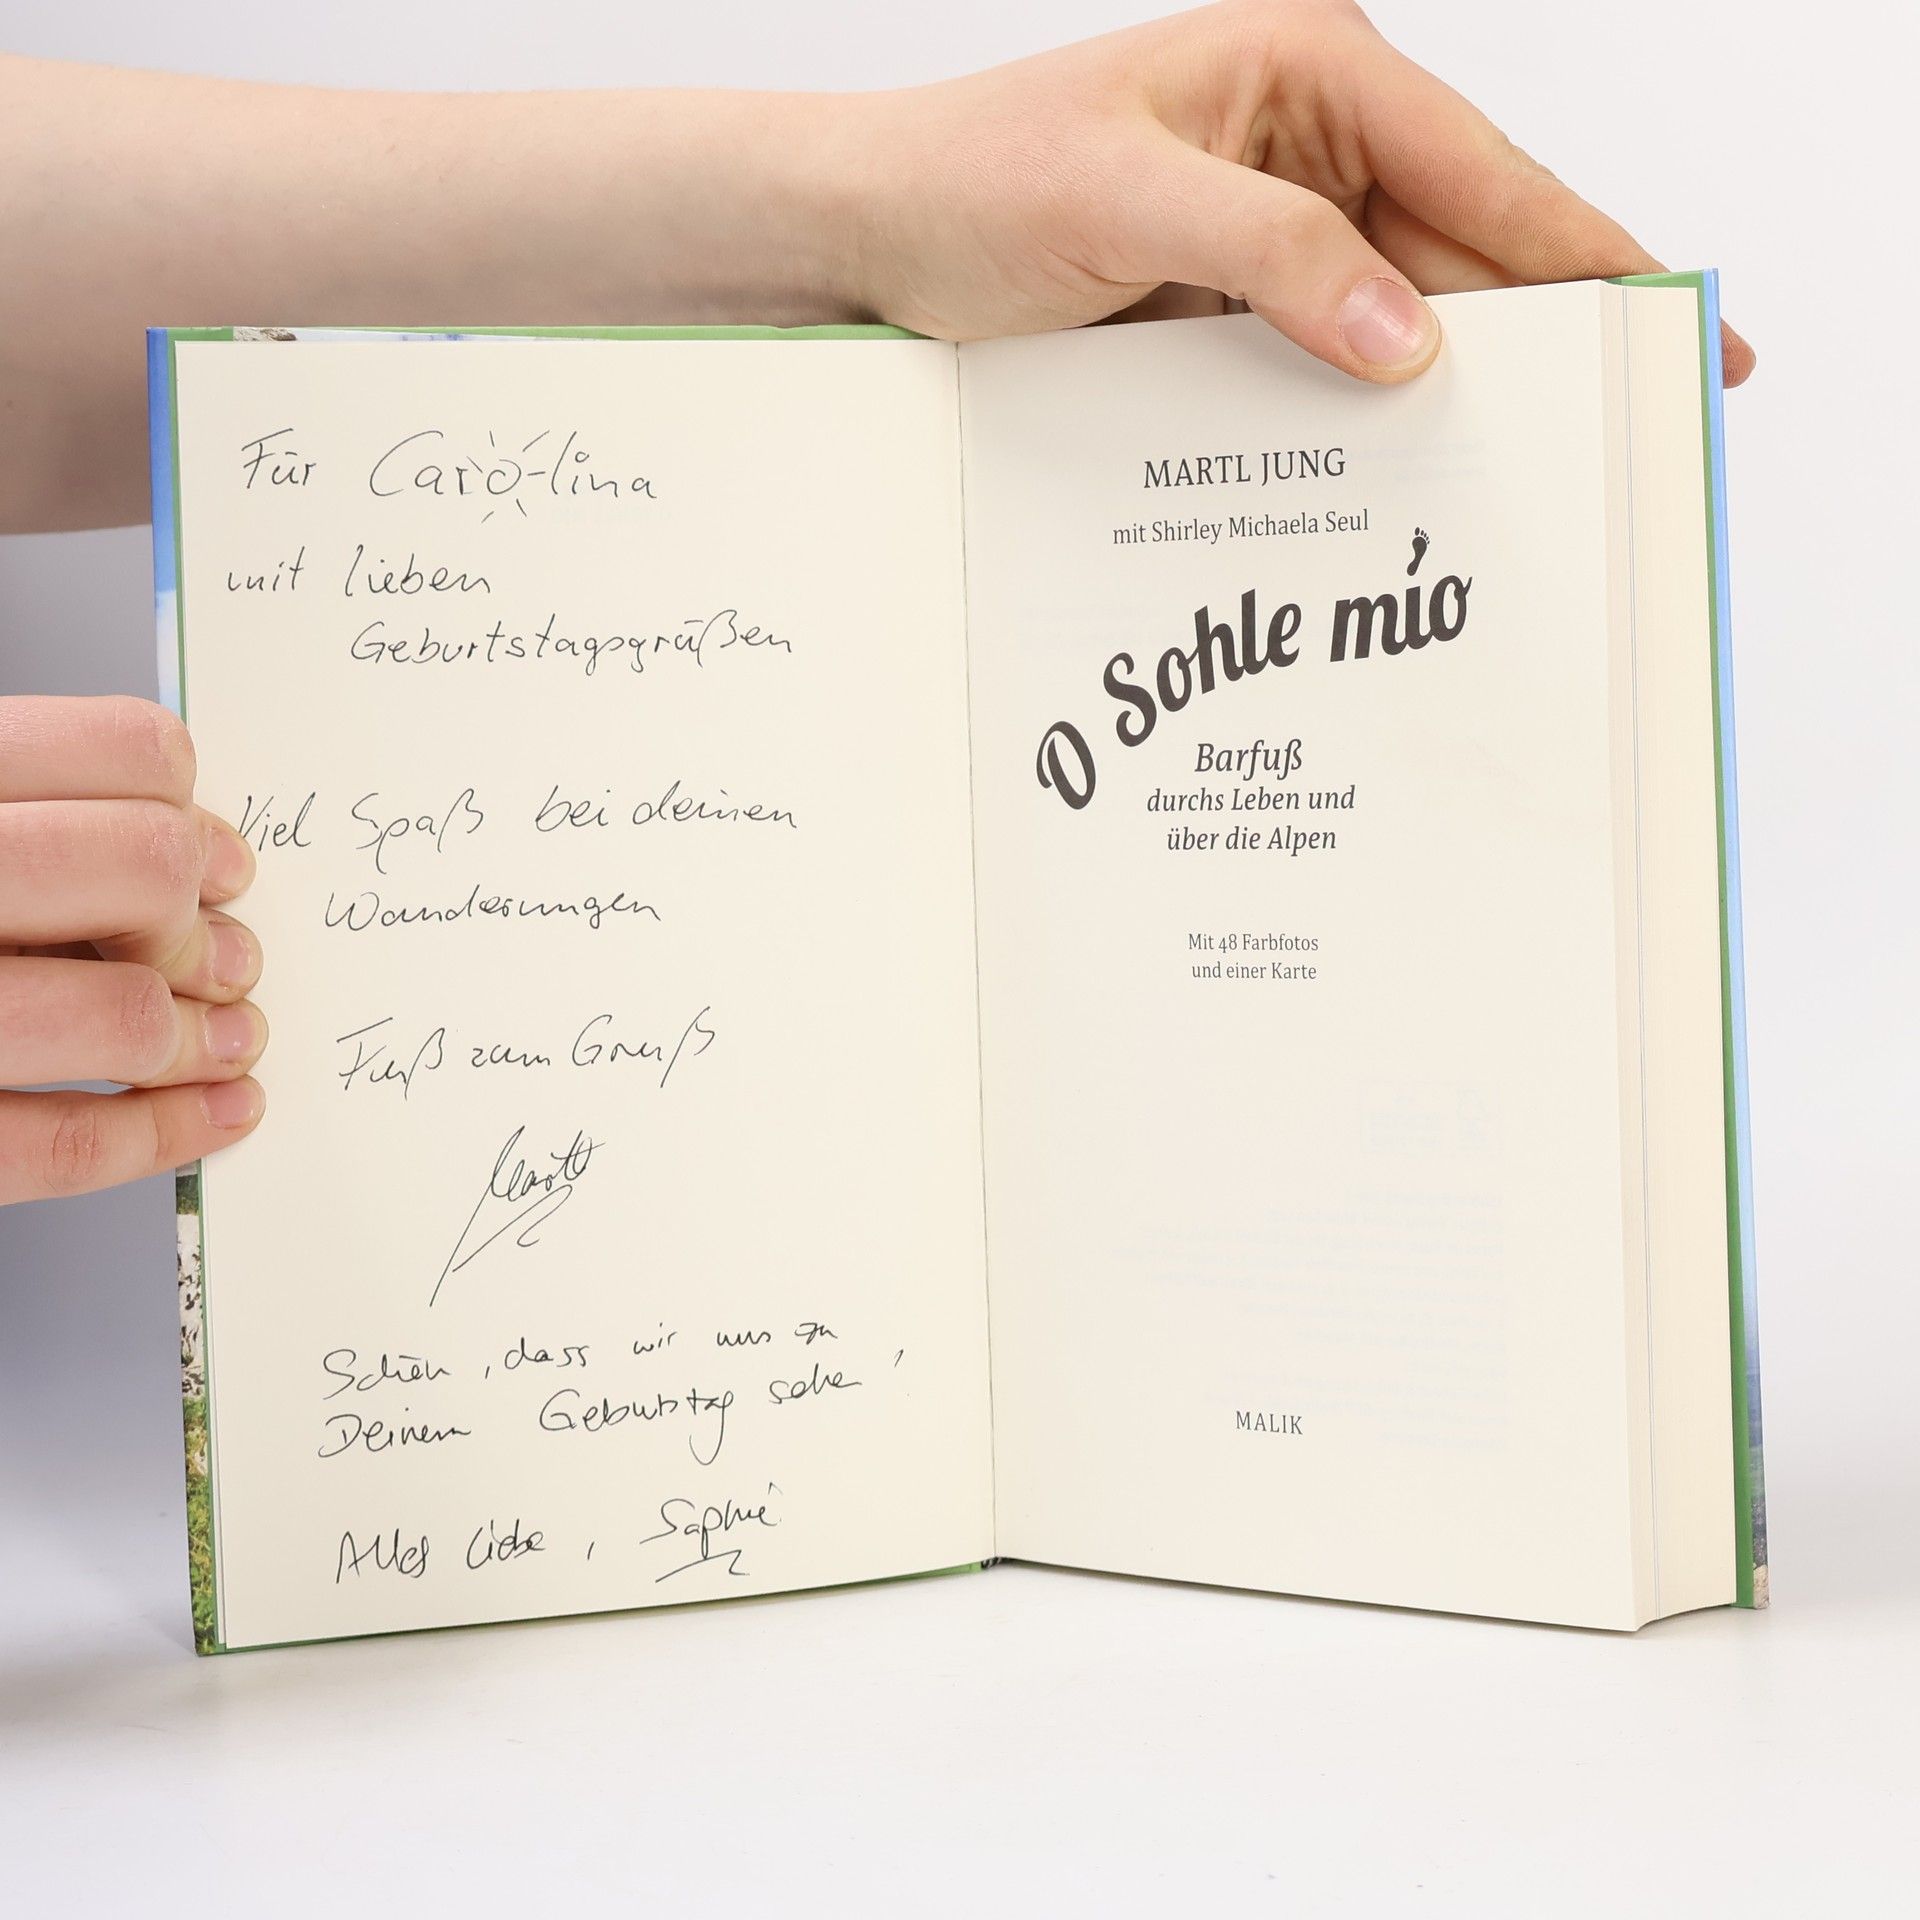 Für Caro-lina
mit lieben
Geburtstagsgrüßen
Viel Spaß bei deinen
Wanderungen
Fuß zum Gruß
Martl
Schön, dass wir uns zu
Deinem Geburtstag sehen!
Alles Liebe, Sophie
MARTL JUNG
mit Shirley Michaela Seul
O Sohle mio
Barfuß
durchs Leben und
über die Alpen
Mit 48 Farbfotos
und einer Karte
MALIK